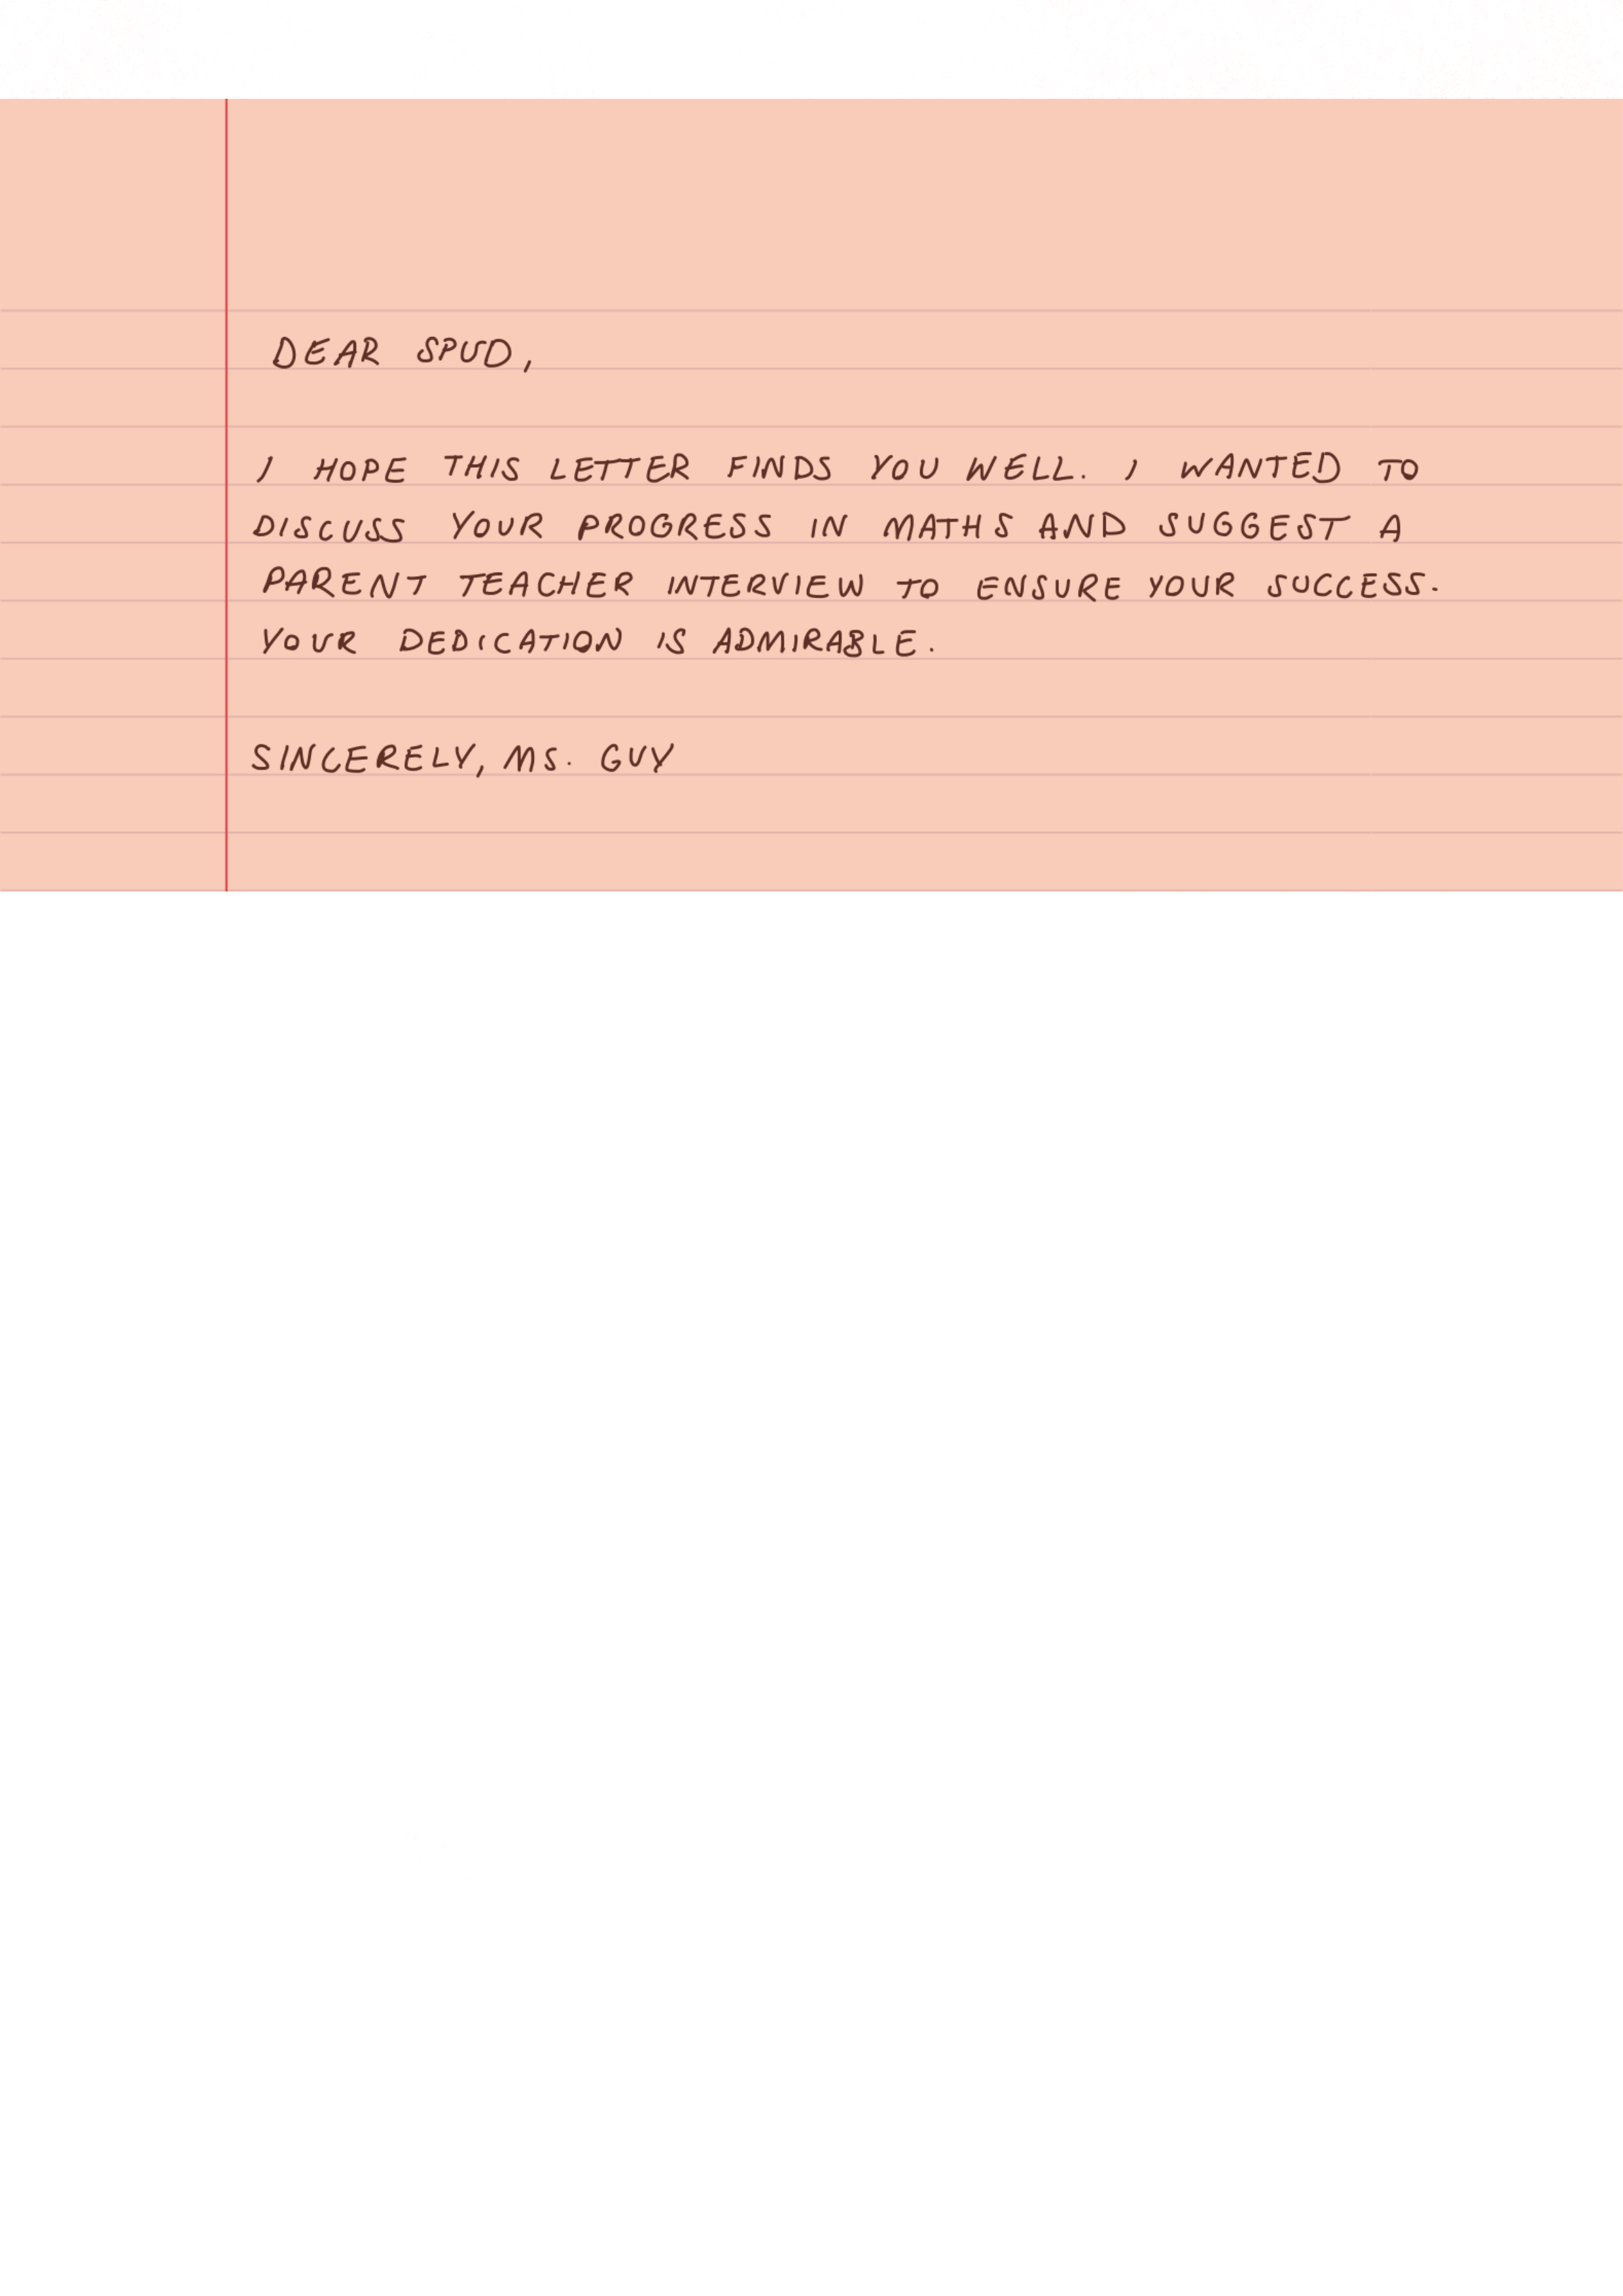 DEAR SPUD,
I HOPE THIS LETTER FINDS YOU WELL. I WANTED TO
DISCUSS YOUR PROGRESS IN MATHS AND SUGGEST A
PARENT TEACHER INTERVIEW TO ENSURE YOUR SUCCESS.
YOUR DEDICATION IS ADMIRABLE.
SINCERELY, MS. GUY